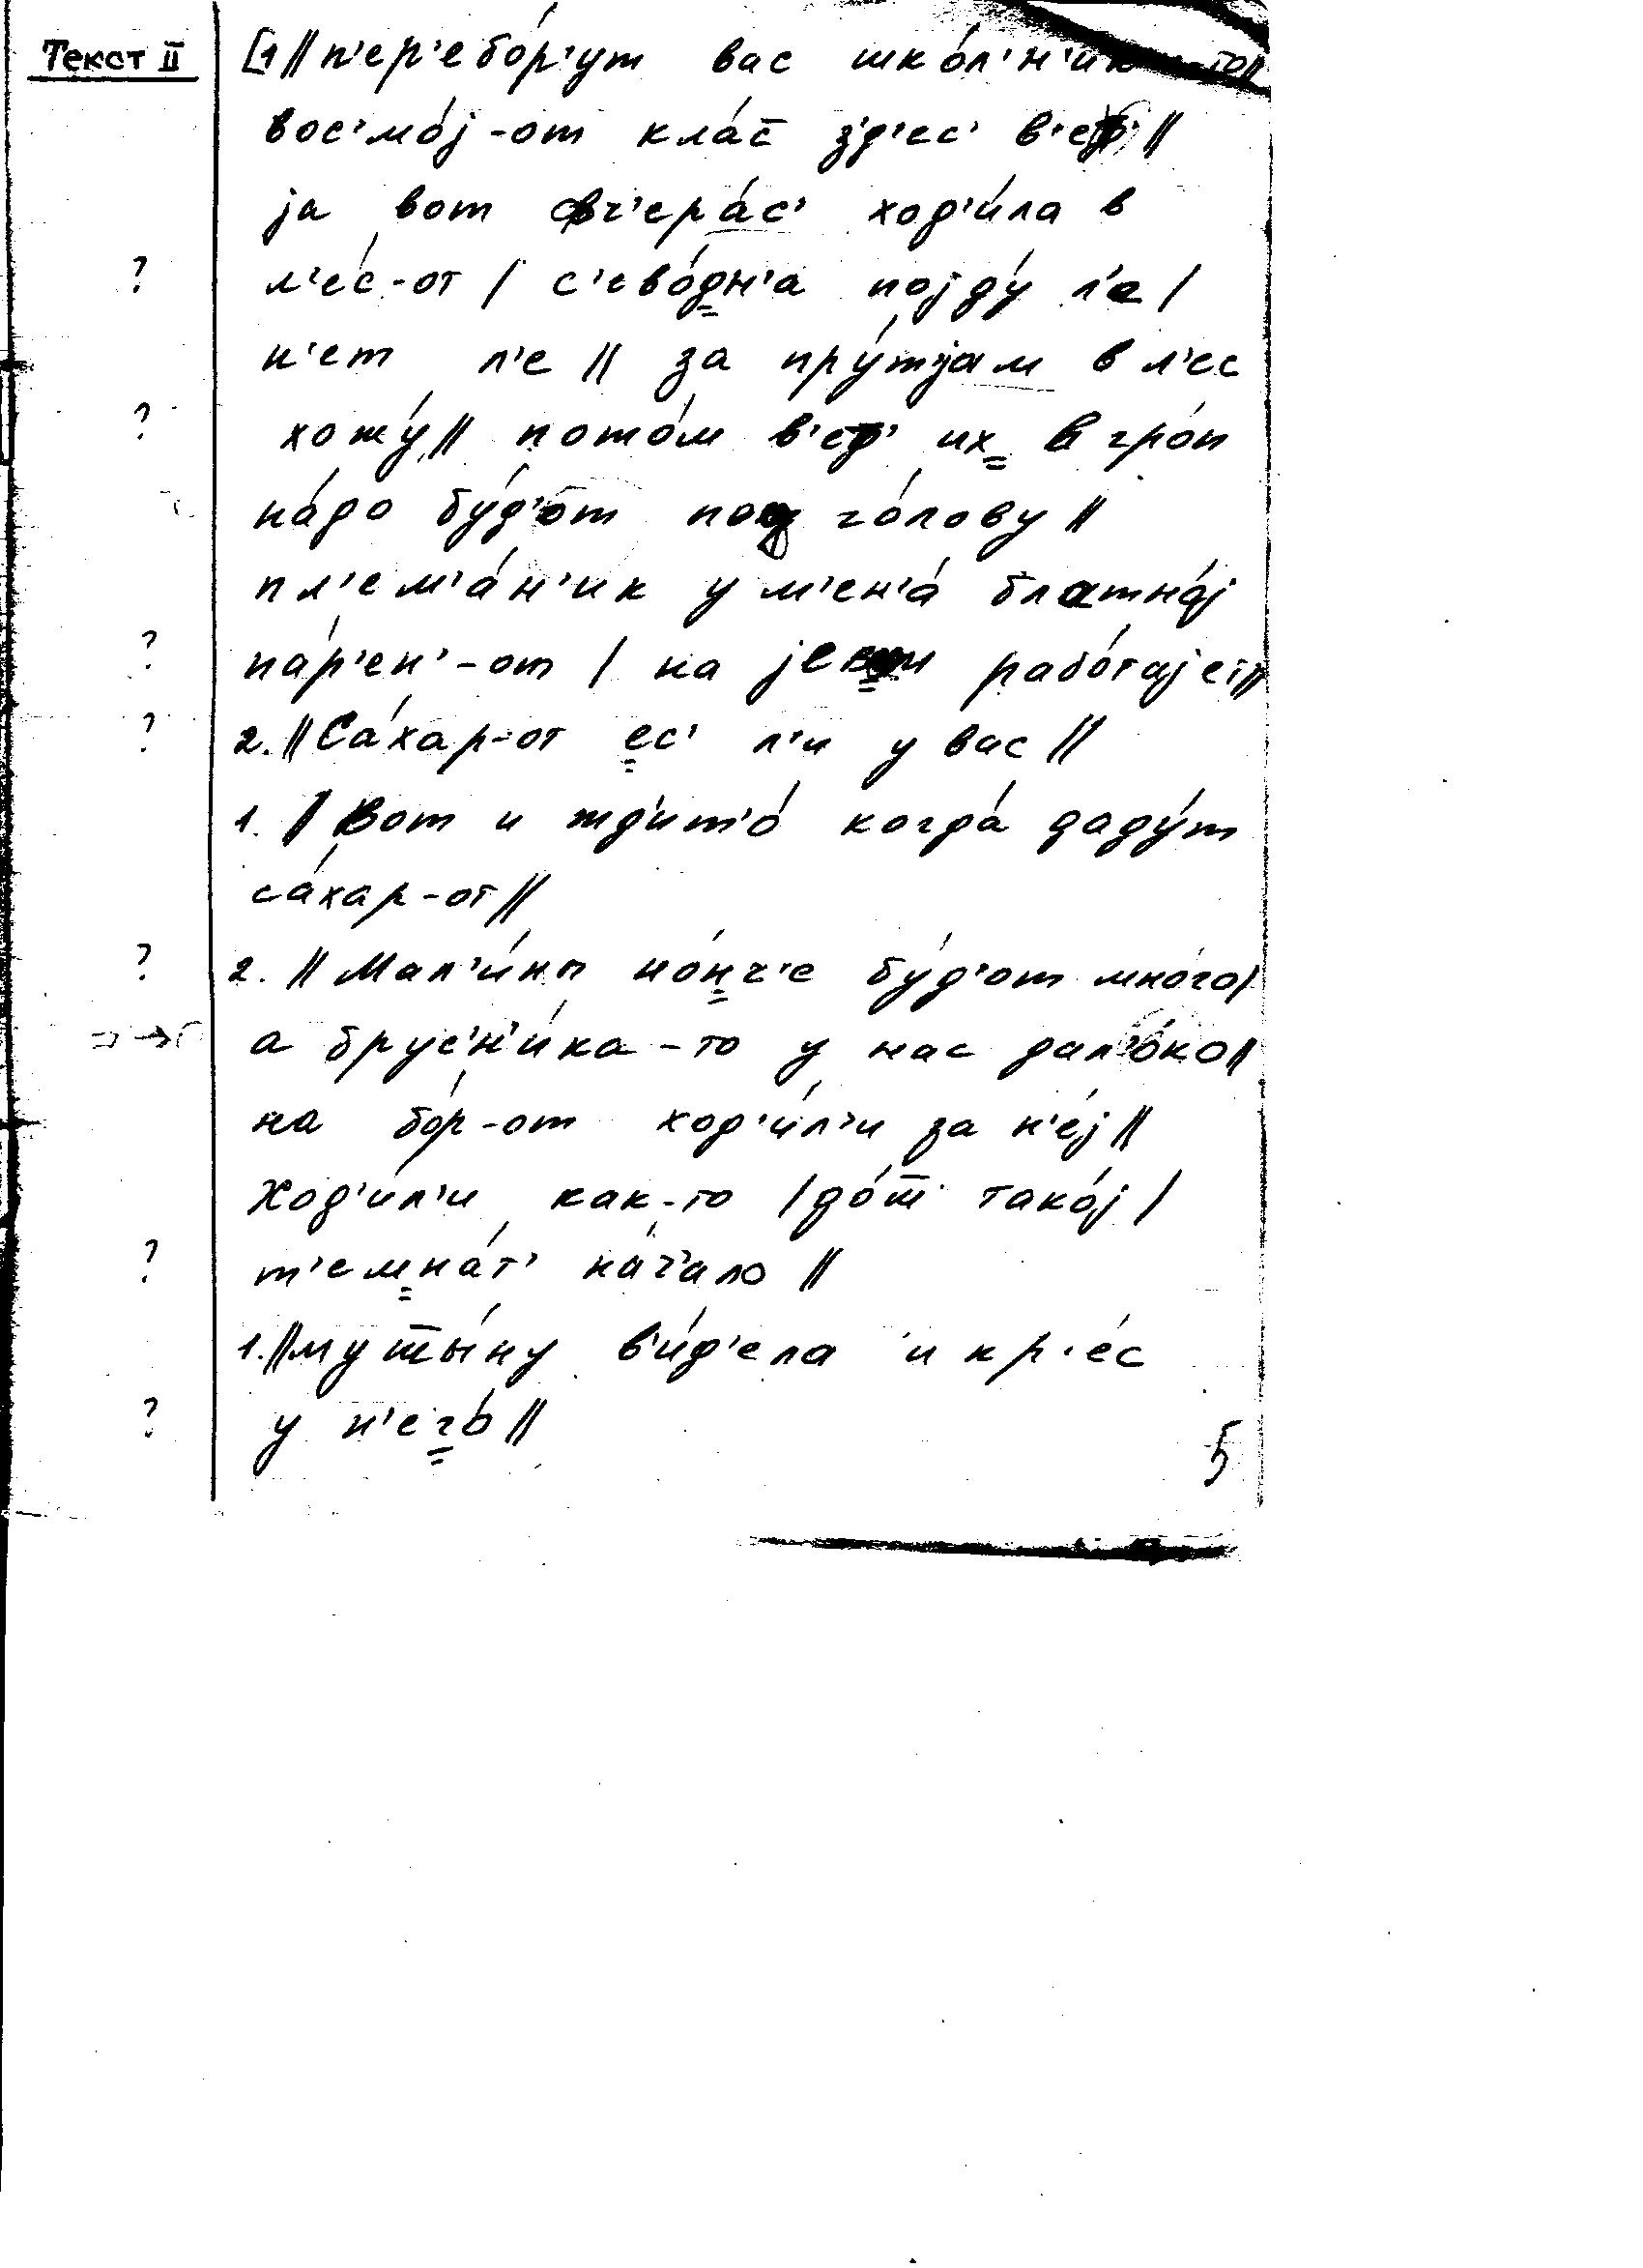 Текст II
[1 // п'ер'ебо́р'ут вас шко́л'н'ик -то //
вос'мо́ј-от кла́с̄ з'д'ес' в'ет' //
ја вот вч'ера́с' ход'и́ла в
? л'е́с-от / с'ево́дн'а појду́ л'е /
н'ет л'е // за пру́тјам в л'ес
? хожу́ // пото́м в'ет' их в гро́п
на́до бу́д'от под го́лову //
пл'ем'а́н'ик у м'ен'а́ блатно́ј
? па́р'ен'-от / на рабо́тајет //
? 2. // Са́хар-от ес' л'и у вас //
1. // Вот и жд'ит'о́ когда́ даду́т
са́хар-от //
? 2. // Мал'и́ны но́нч'е бу́д'от мно́го /
⊃→⊂ а брус'н'и́ка-то у нас дал'о́ко //
на бо́р-от ход'и́л'и за н'е́ј //
Ход'и́л'и как-то / до́ш̄ тако́ј /
? т'емна́т' на́ч'ало //
1. // мушы́ну в'и́д'ела и кр'е́с
? у н'его́ //
5